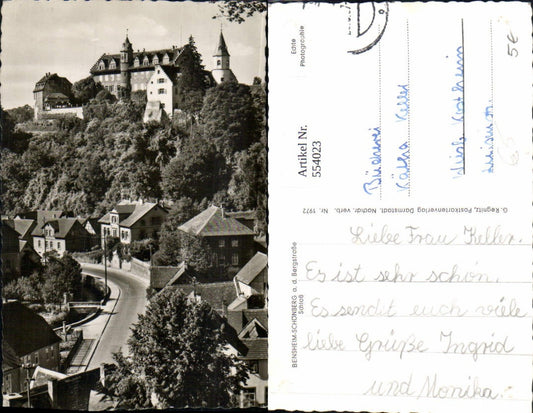 Echte
Photographie
Artikel Nr.
554023
5€
65
Käthe Keller
G. Regnitz, Postkartenverlag Darmstadt, Nachdr. verb. Nr. 1972
BENSHEIM-SCHÖNBERG a. d. Bergstraße
Schloß
Liebe Frau Keller.
Es ist sehr schön.
Es sendet euch viele
liebe Grüße Ingrid
und Monika.